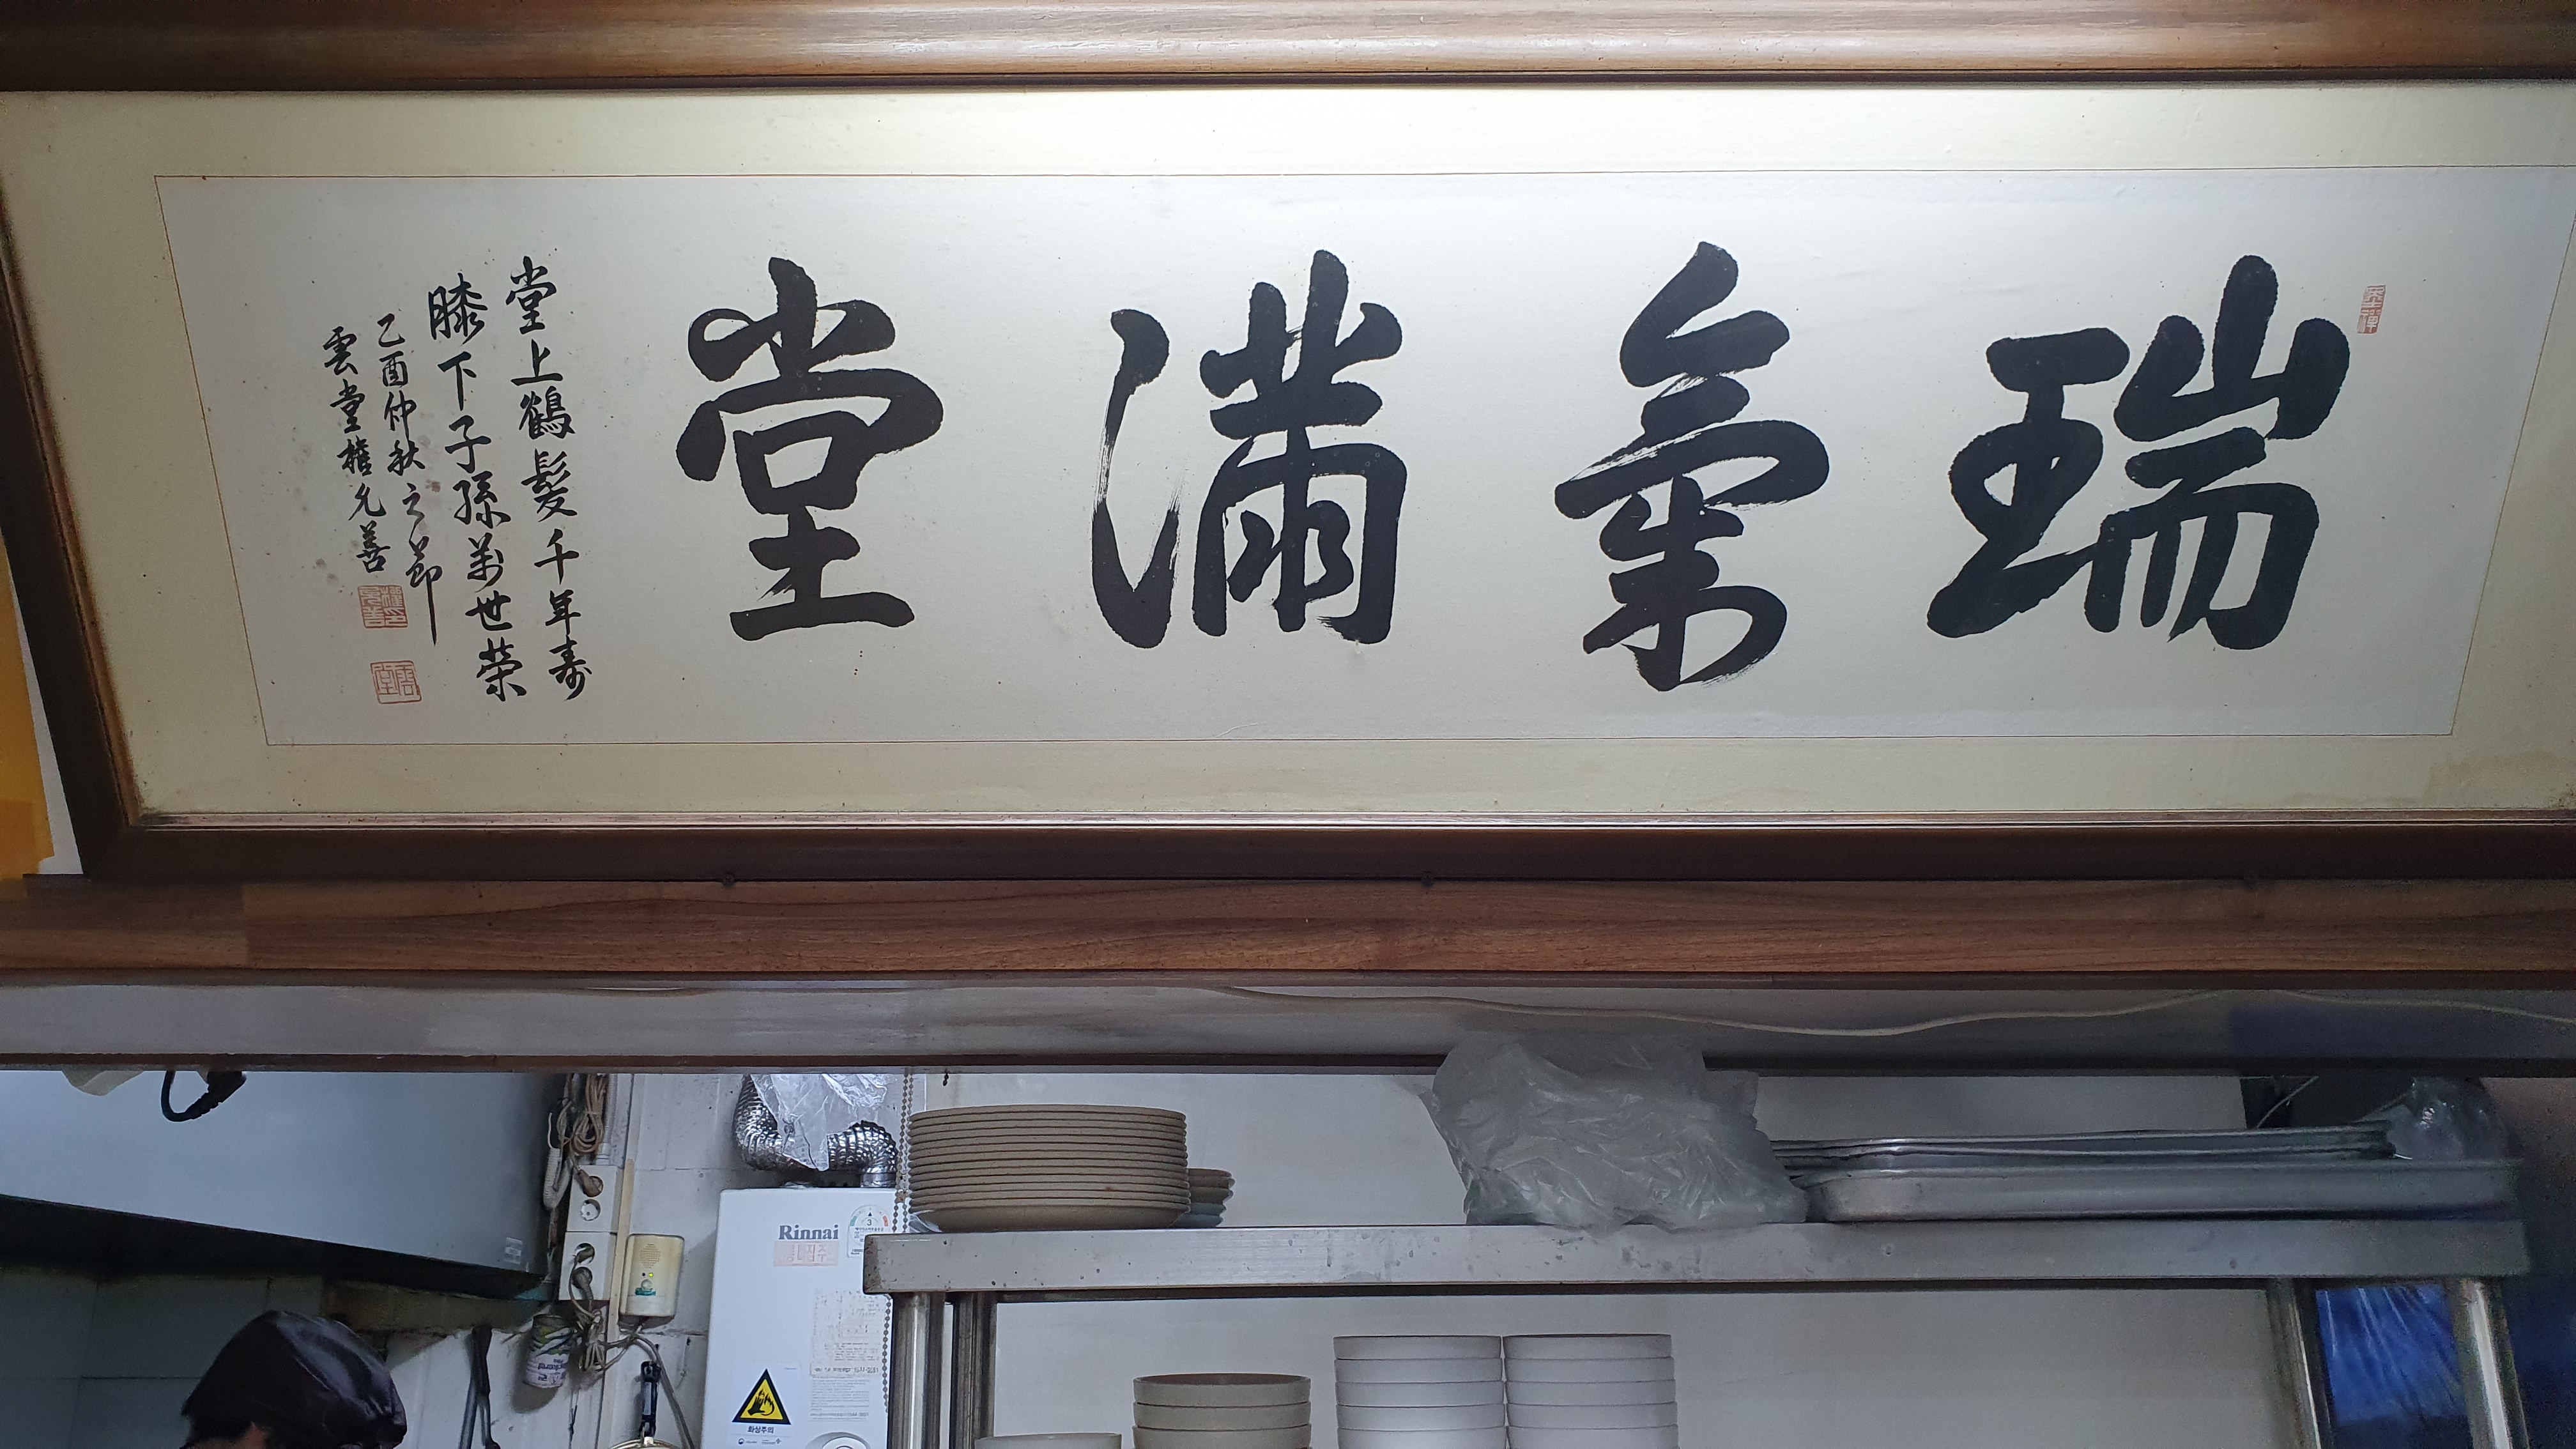 瑞氣滿堂
堂上鶴髮千年壽
膝下子孫萬世榮
乙酉仲秋之節
雲堂權允善
Rinnai
3
화상주의